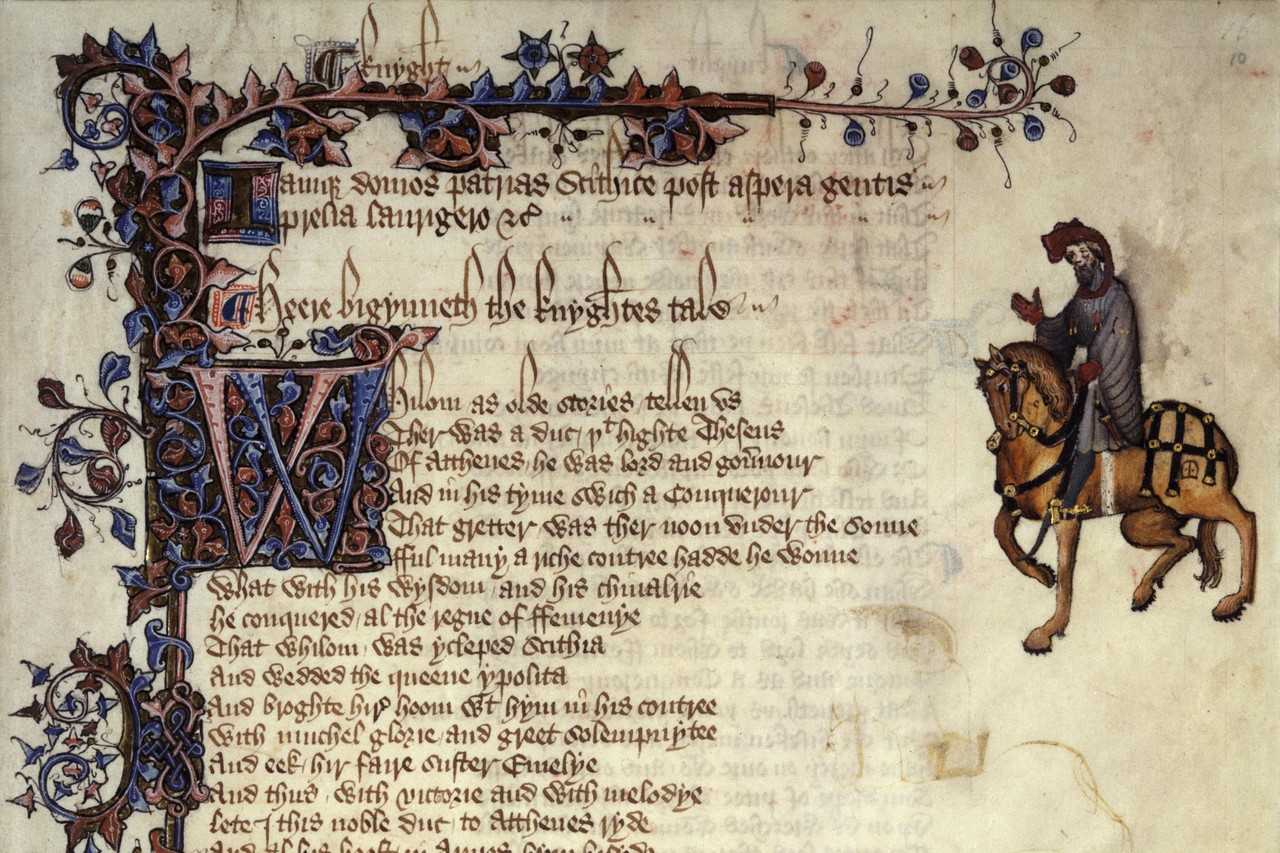 ¶ Knyght
10
Iamque domos patrias Scithice post aspera gentis
prelia laurigero &c
¶ Heere bigynneth the knyghtes tale
Whilom as olde stories / tellen vs
Ther was a duc / yt highte Theseus
Of Atthenes / he was lord and gou̅nour
And in his tyme swich a Conquerour
That gretter was ther noon vnder the sonne
fful many a riche contree hadde he wonne
What with his wysdom / and his chiualrie
he conquered / al the regne of ffemenye
That whilom / was ycleped Scithia
And wedded the queene ypolita
And broghte hir hoom wt hym in his contree
With muchel glorie / and greet solempnytee
And eek / hir faire suster Emelye
And thus / with victorie and with melodye
lete I this noble duc / to Atthenes ryde
And al his hoost / in Armes hym bisyde